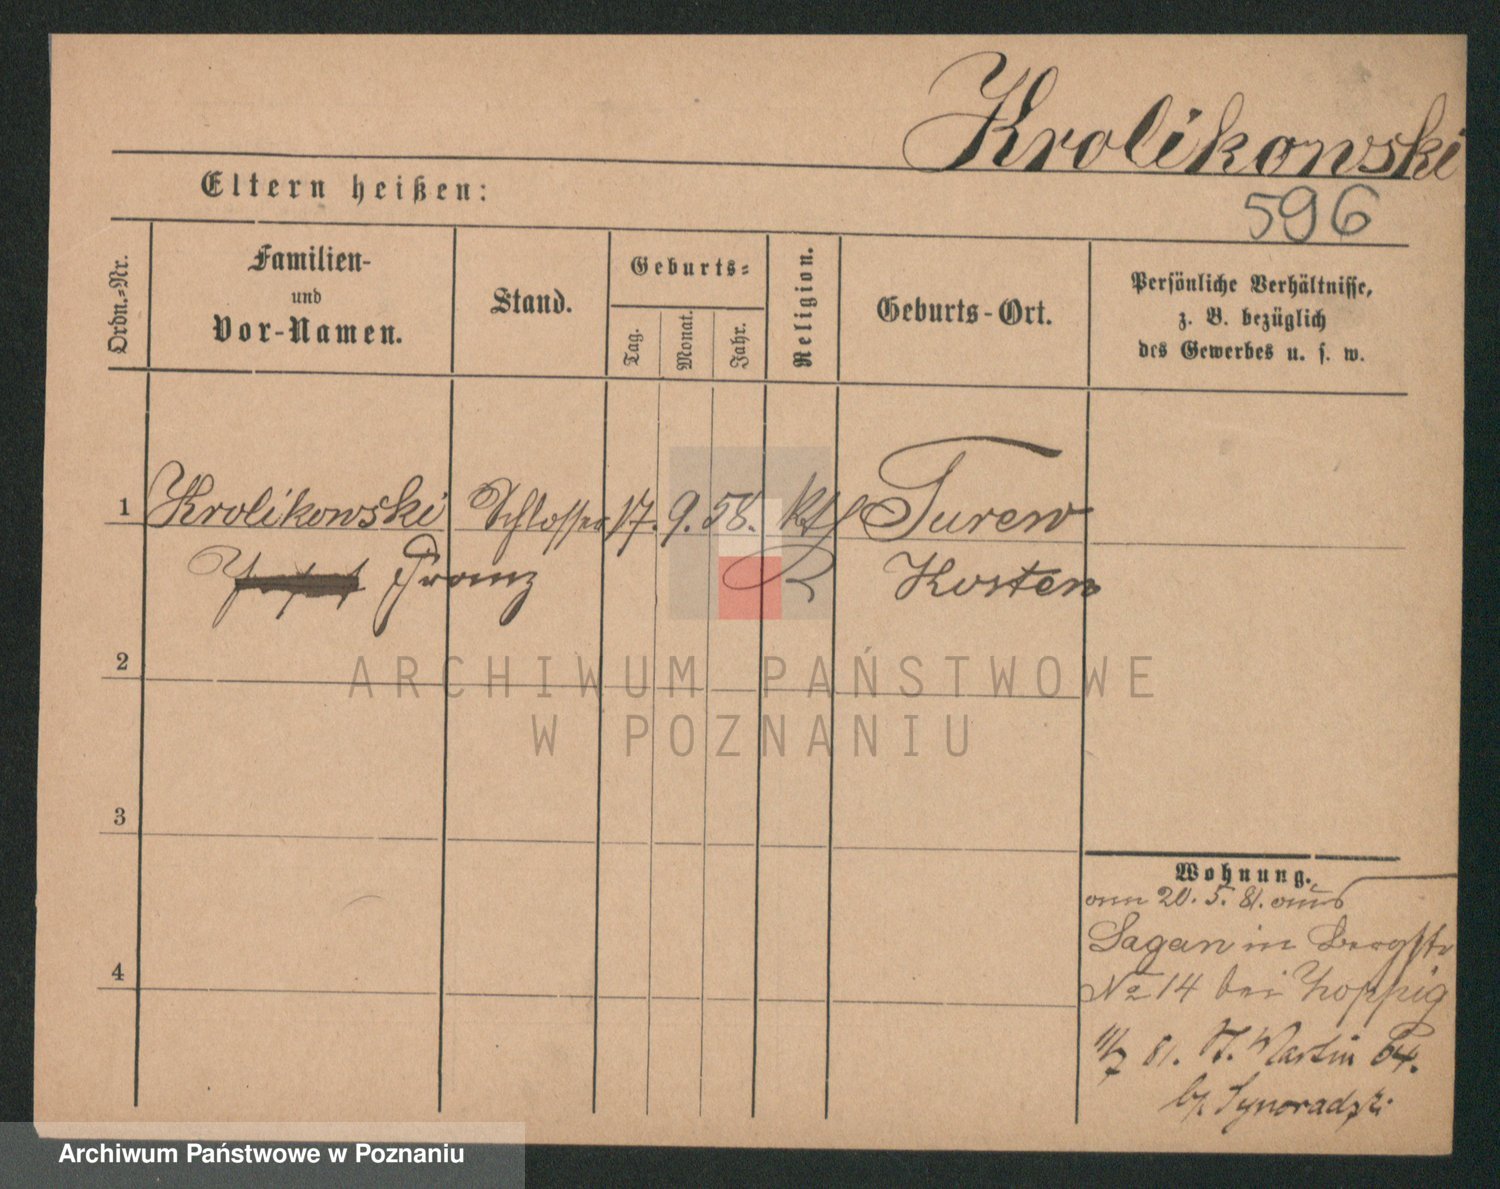 Krolikowski
Eltern heißen:
596
Ordn.-Nr.
Familien-
und
Vor-Namen.
Stand.
Geburts-
Tag.
Monat.
Jahr.
Religion.
Geburts-Ort.
Persönliche Verhältnisse,
z. B. bezüglich
des Gewerbes u. s. w.
1
Krolikowski
Schlosser
17.
9.
58.
kth
Turew
Franz
Kosten
2
ARCHIWUM PAŃSTWOWE
W POZNANIU
3
4
Wohnung.
am 20. 5. 81. aus
Sagan in Bergstr
No 14 bei
11/7 81. St. Martin 64.
Archiwum Państwowe w Poznaniu